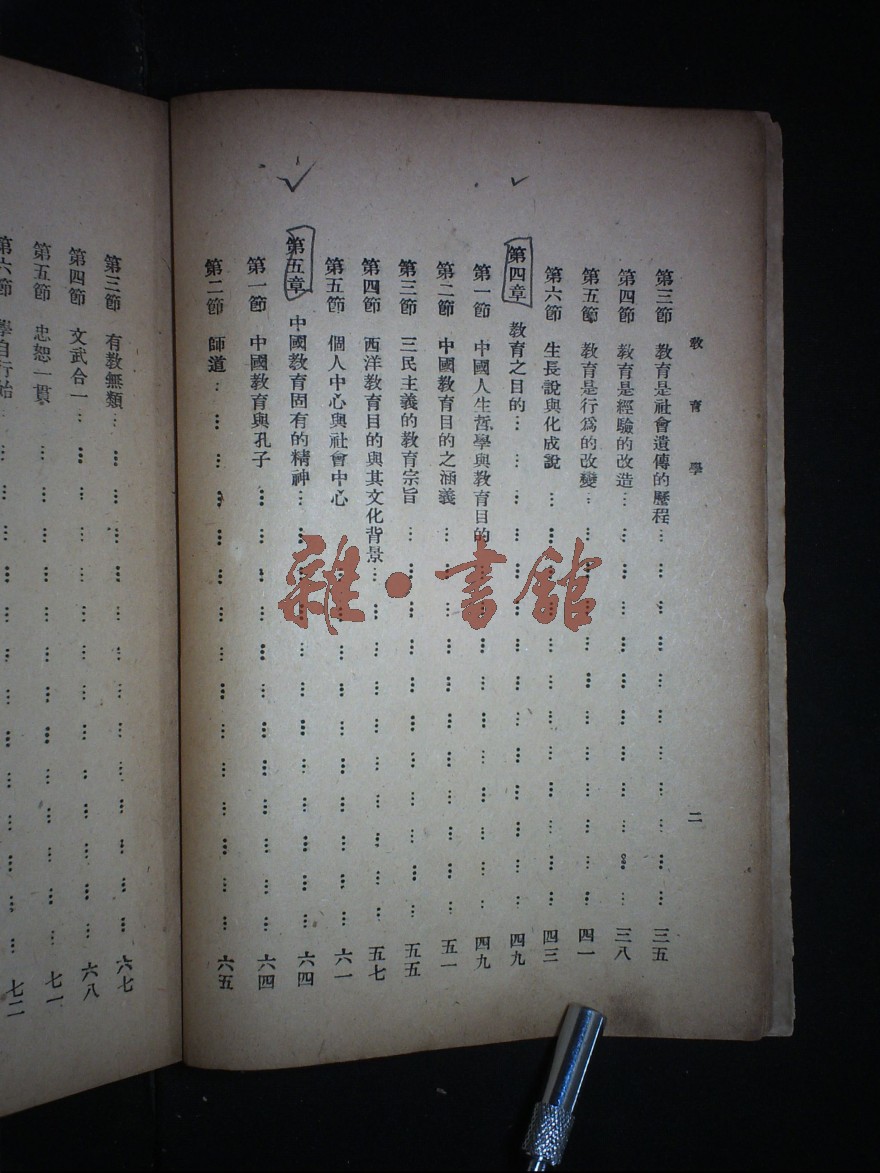 教育學
二
第三節 教育是社會遺傳的歷程…………三五
第四節 教育是經驗的改造…………三八
第五節 教育是行為的改變…………四一
第六節 生長說與化成說…………四三
第四章 教育之目的…………四九
第一節 中國人生哲學與教育目的…………四九
第二節 中國教育目的之涵義…………五一
第三節 三民主義的教育宗旨…………五五
第四節 西洋教育目的與其文化背景…………五七
第五節 個人中心與社會中心…………六一
第五章 中國教育固有的精神…………六四
第一節 中國教育與孔子…………六四
第二節 師道…………六五
第三節 有教無類…………六七
第四節 文武合一…………六八
第五節 忠恕一貫…………七一
第六節 學自行始…………七二
雜·書館